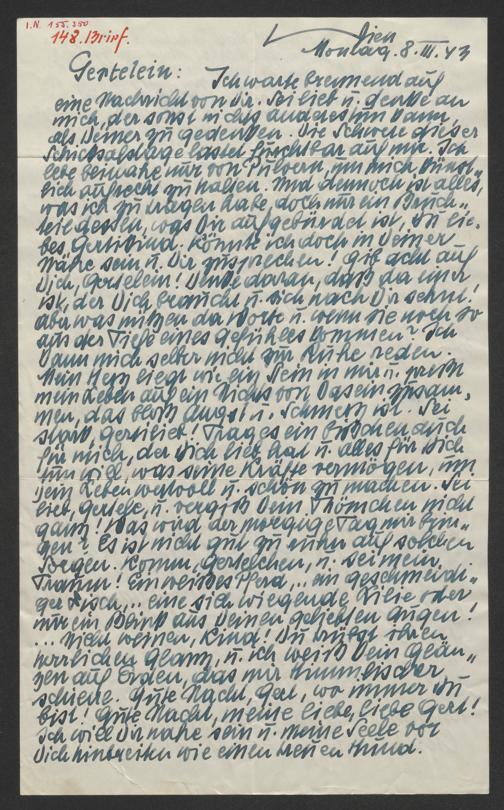 I.N. 155.250
148. Brief.
Wien
Montag. 8. III. 43
Gertelein: Ich warte brennend auf
eine Nachricht von Dir. Sei lieb u. denke an
mich, der sonst nichts anderes tun kann,
als Deiner zu gedenken. Die Schwere dieser
Schicksalstage lastet furchtbar auf mir. Ich
lebe beinahe nur von Pulvern, um mich künst-
lich aufrecht zu halten. Und dennoch ist alles,
was ich zu tragen habe, doch nur ein Bruch-
teil dessen, was Dir aufgebürdet ist, Du lie-
bes Gertikind. Könnte ich doch in Deiner
Nähe sein u. Dir zusprechen! Gib acht auf
Dich, Gertelein! Denke daran, daß da einer
ist, der Dich braucht u. sich nach Dir sehnt!
Aber was nützen da Worte u. wenn sie noch so
aus der Tiefe eines Gefühles kommen? Ich
kann mich selber nicht zur Ruhe reden.
Mein Herz liegt wie ein Stein in mir u. preßt
mein Leben auf ein Nichts von Dasein zusam-
men, das bloß Angst u. Schmerz ist. Sei
stark, Geliebte! Trage es ein bißchen auch
für mich, der Dich lieb hat u. alles für Dich
tun will, was seine Kräfte vermögen, um
Dein Leben wertvoll u. schön zu machen. Sei
lieb, Gertele, u. vergiß Dein Thomchen nicht
ganz! Was wird der morgige Tag mir brin-
gen? Es ist nicht gut zu ruhen auf solchen
Bergen. Komm, Gertelchen, u. sei mein
Traum! Ein weißes Pferd,.. ein geschmeidi-
ger Fisch,.. eine sich wiegende Lilie oder
nur ein Blink aus Deinen geliebten Augen!
... Nicht weinen, Kind! Du trübst ihren
herrlichen Glanz, u. ich weiß kein Glän-
zen auf Erden, das mir himmlischer
schiene. Gute Nacht, Gert, wo immer Du
bist! Gute Nacht, meine liebe, liebe Gert!
Ich will Dir nahe sein u. meine Seele vor
Dich hinbreiten wie einen treuen Hund.